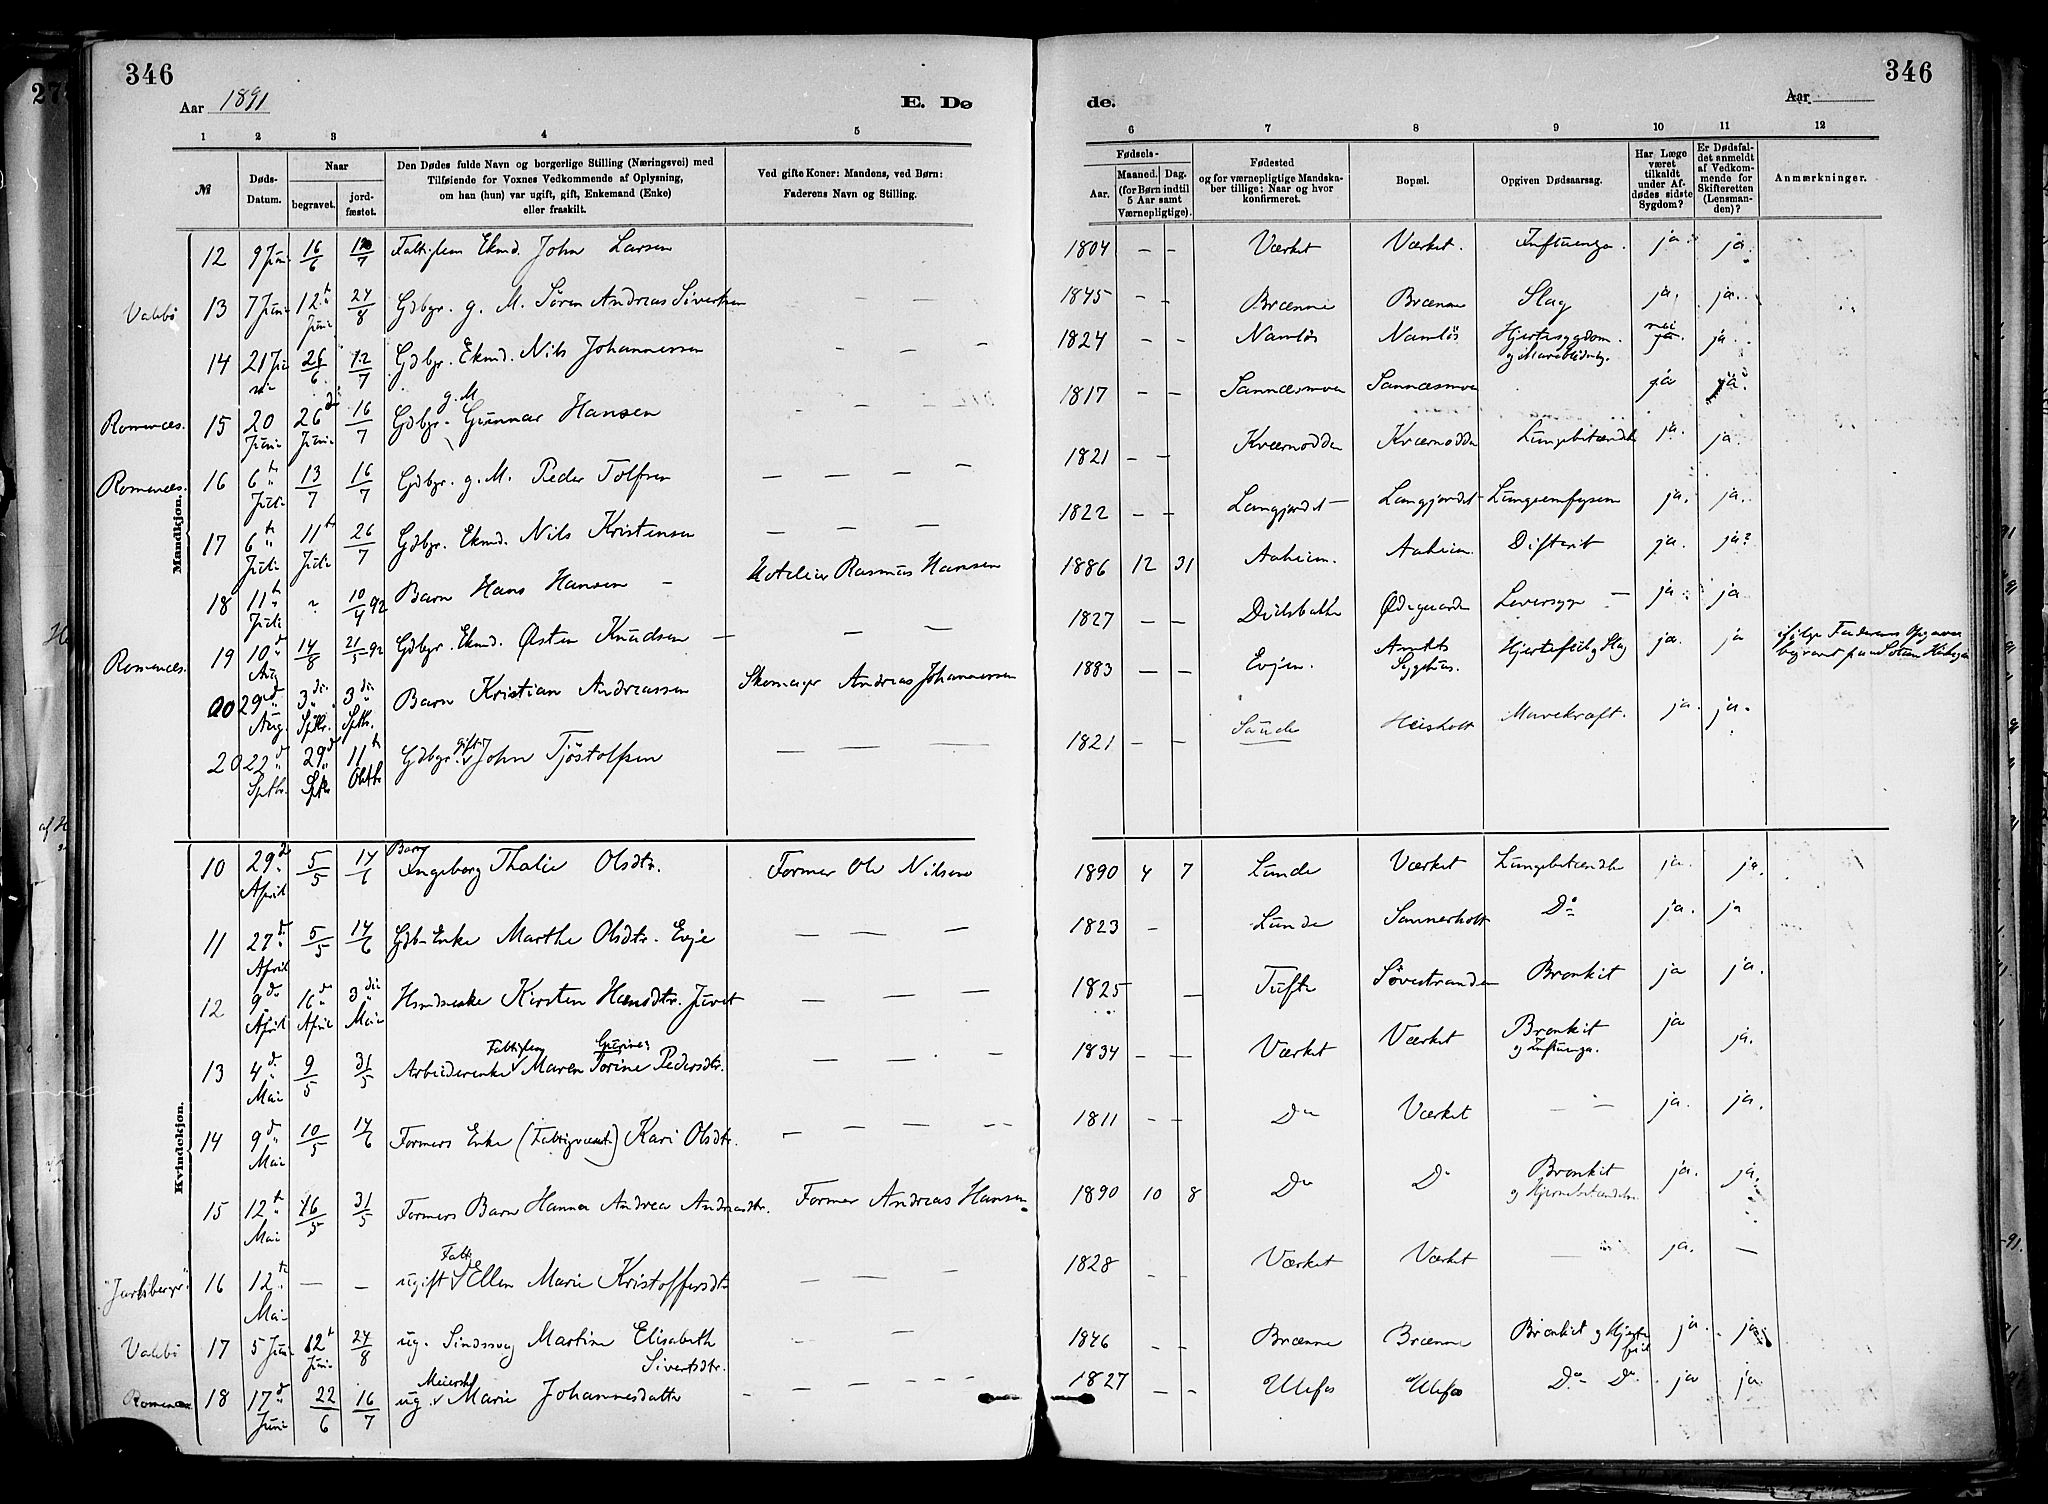 346
Aar 1891
E. Dø
de.
Aar
346
1 2 3 4 5
6 7 8 9 10 11 12
№
Døds-
Datum.
Naar
begravet.
jord-
fæstet.
Den Dødes fulde Navn og borgerlige Stilling (Næringsvei) med
Tilføiende for Voxnes Vedkommende af Oplysning,
om han (hun) var ugift, gift, Enkemand (Enke)
eller fraskilt.
Ved gifte Koner: Mandens, ved Børn:
Faderens Navn og Stilling.
Fødsels-
Aar.
Maaned. Dag.
(for Børn indtil
5 Aar samt
Værnepligtige).
Fødested
og for værnepligtige Mandska-
ber tillige: Naar og hvor
konfirmeret.
Bopæl.
Opgiven Dødsaarsag.
Har Læge
været
tilkaldt
under Af-
dødes sidste
Sygdom?
Er Dødsfal-
det anmeldt
af Vedkom-
mende for
Skifteretten
(Lensman-
den)?
Anmærkninger.
Mandkjøn.
12 9 Juni 16/6 Ekmd. John Larsen 1804 — — Værket Værket. ja. ja.
13 7 Juni 12 Juni 24/8 Gdbgr. g. M. Søren Andreas Sivertsen — — — 1845 — — Brænne Brænne Slag ja. ja.
14 21 Juni 26/6 12/7 Gdbgr. Ekmd. Nils Johannessen — — — 1824 — — Namløs Namløs Hjertesygdom. nei ja.
Romenæs. 15 20 Juni 26 Juni 16/7 Gdbgr. g. M Gunnar Hansen 1817 — — Sannæsmoen Sannæsmoen ja ja.
Romenæs. 16 6 Juli 13/7 16/7 Gdbgr. g. M. Peder Tolfsen — — — 1821 — — Kværnodden Kværnodden Lungebetændelse ja. ja.
17 6 Juli 11 Juli 26/7 Gdbgr. Ekmd. Nils Kristensen — — — 1822 — — Langjordet Langjordet Lungeemfysem ja. ja.
18 11 Juli 10/4 92 Barn Hans Hansen — Rasmus Hansen 1886 12 31 Aaheim. Aaheim. Difterit ja. ja
Romenæs. 19 10 Aug 14/8 21/5 92 Gdbgr. Ekmd. Østen Knudsen — — — 1827 — — Ødegaarden Leversyge — ja ja
20 29 Aug. 3 Sptbr. 3 Sptbr. Barn Kristian Andreassen Skomager Andreas Johannessen 1883 — — Evjen. Amtets Sygehus. Hjertefeil og Slag ja. ja ifølge Faderens Opgave
20 22 Sptbr. 29 Sptbr 11 Oktbr Gdbgr. gift John Tjøstolfsen — — — 1821 — — Saude Heisholt Mavekræft. ja. ja.
Kvindekjøn.
10 29 April 5/5 14/6 Barn Ingeborg Thalie Olsdtr. Former Ole Nilsen 1890 4 7 Lunde Værket Lungebetændelse ja. ja.
11 27 April 5/5 14/6 Gdb-Enke Marthe Olsdtr. Evje — — — 1823 — Lunde Sannerholt Do ja. ja
12 9 April 16 April 3 Mai Kirsten Hansdtr. Juvet — — — 1825 — Tufte Søvestranden Bronkit ja ja.
13 4 Mai 9/5 31/5 Arbeiderenke Fattiglem Maren Torine Gurine Pedersdtr. — — — 1834 — — Værket Værket Bronkit ja ja.
14 9 Mai 10/5 14/6 Formers Enke Kari Olsdtr. — — — 1811 — — Do Værket — — ja. ja.
15 12 Mai 16/5 31/5 Formers Barn Hanna Andrea Andreasdtr. Former Andreas Hansen 1890 10 8 Do Do Bronkit og Hjernebetændelse ja. ja.
"Jarlsberger" 16 12 Mai — — ugift Ellen Marie Kristoffersdtr — — — 1828 — — Værket Værket — ja. —
17 5 Juni 12 Juni 24/8 ug. Sindssvag Martine Elisabeth Sivertsdtr. — — — 1846 — — Brænne Brænne Bronkit og Hjertefeil ja. ja
18 17 Juni 22/6 16/7 ug. Marie Johannesdatter — — — 1827 — — Ulefos Ulefos Do Do ja ja.